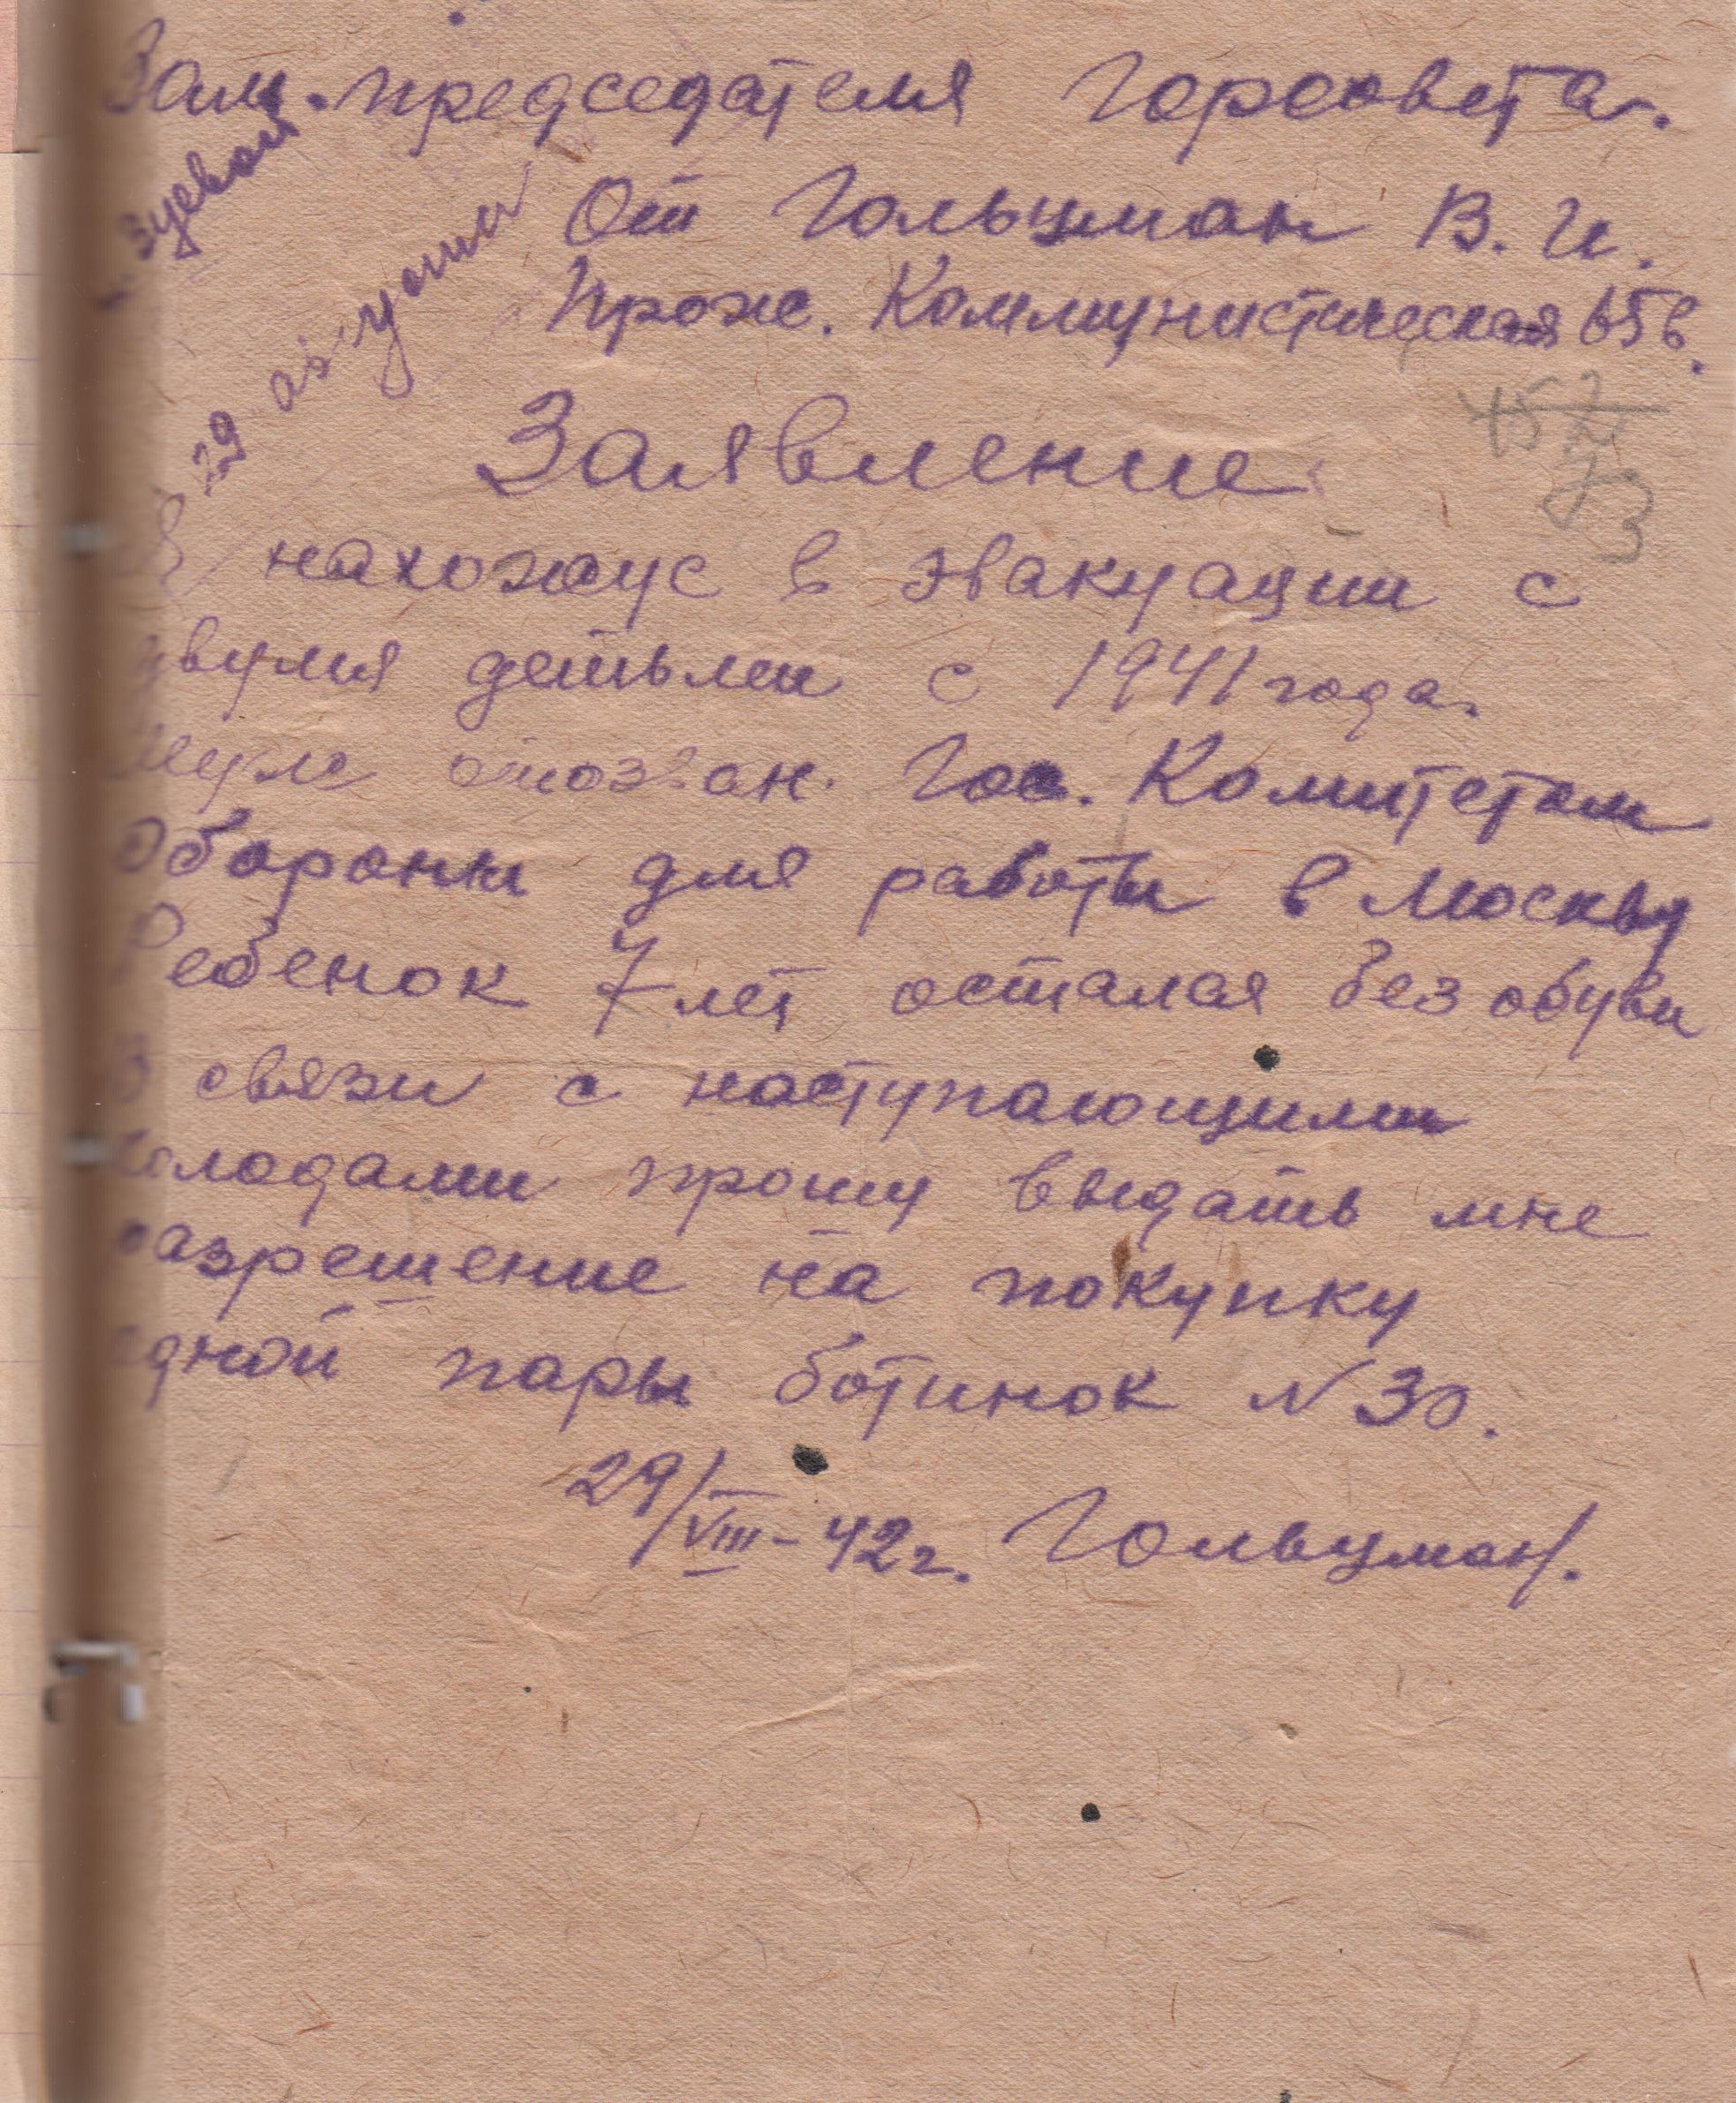 Зам. председателя Горсовета.
Зуевой
От Гольцман В. И.
Прож. Коммунистическая 65 в.
29
Заявление
Я нахожус в эвакуации с
двумя детьми с 1941 года.
Муж отозван Гос. Комитетом
Обороны для работы в Москву
Ребенок 7 лет остался без обуви
В связи с наступающими
холодами прошу выдать мне
разрешение на покупку
одной пары ботинок N 30.
29/VIII-42 г. Гольцман.